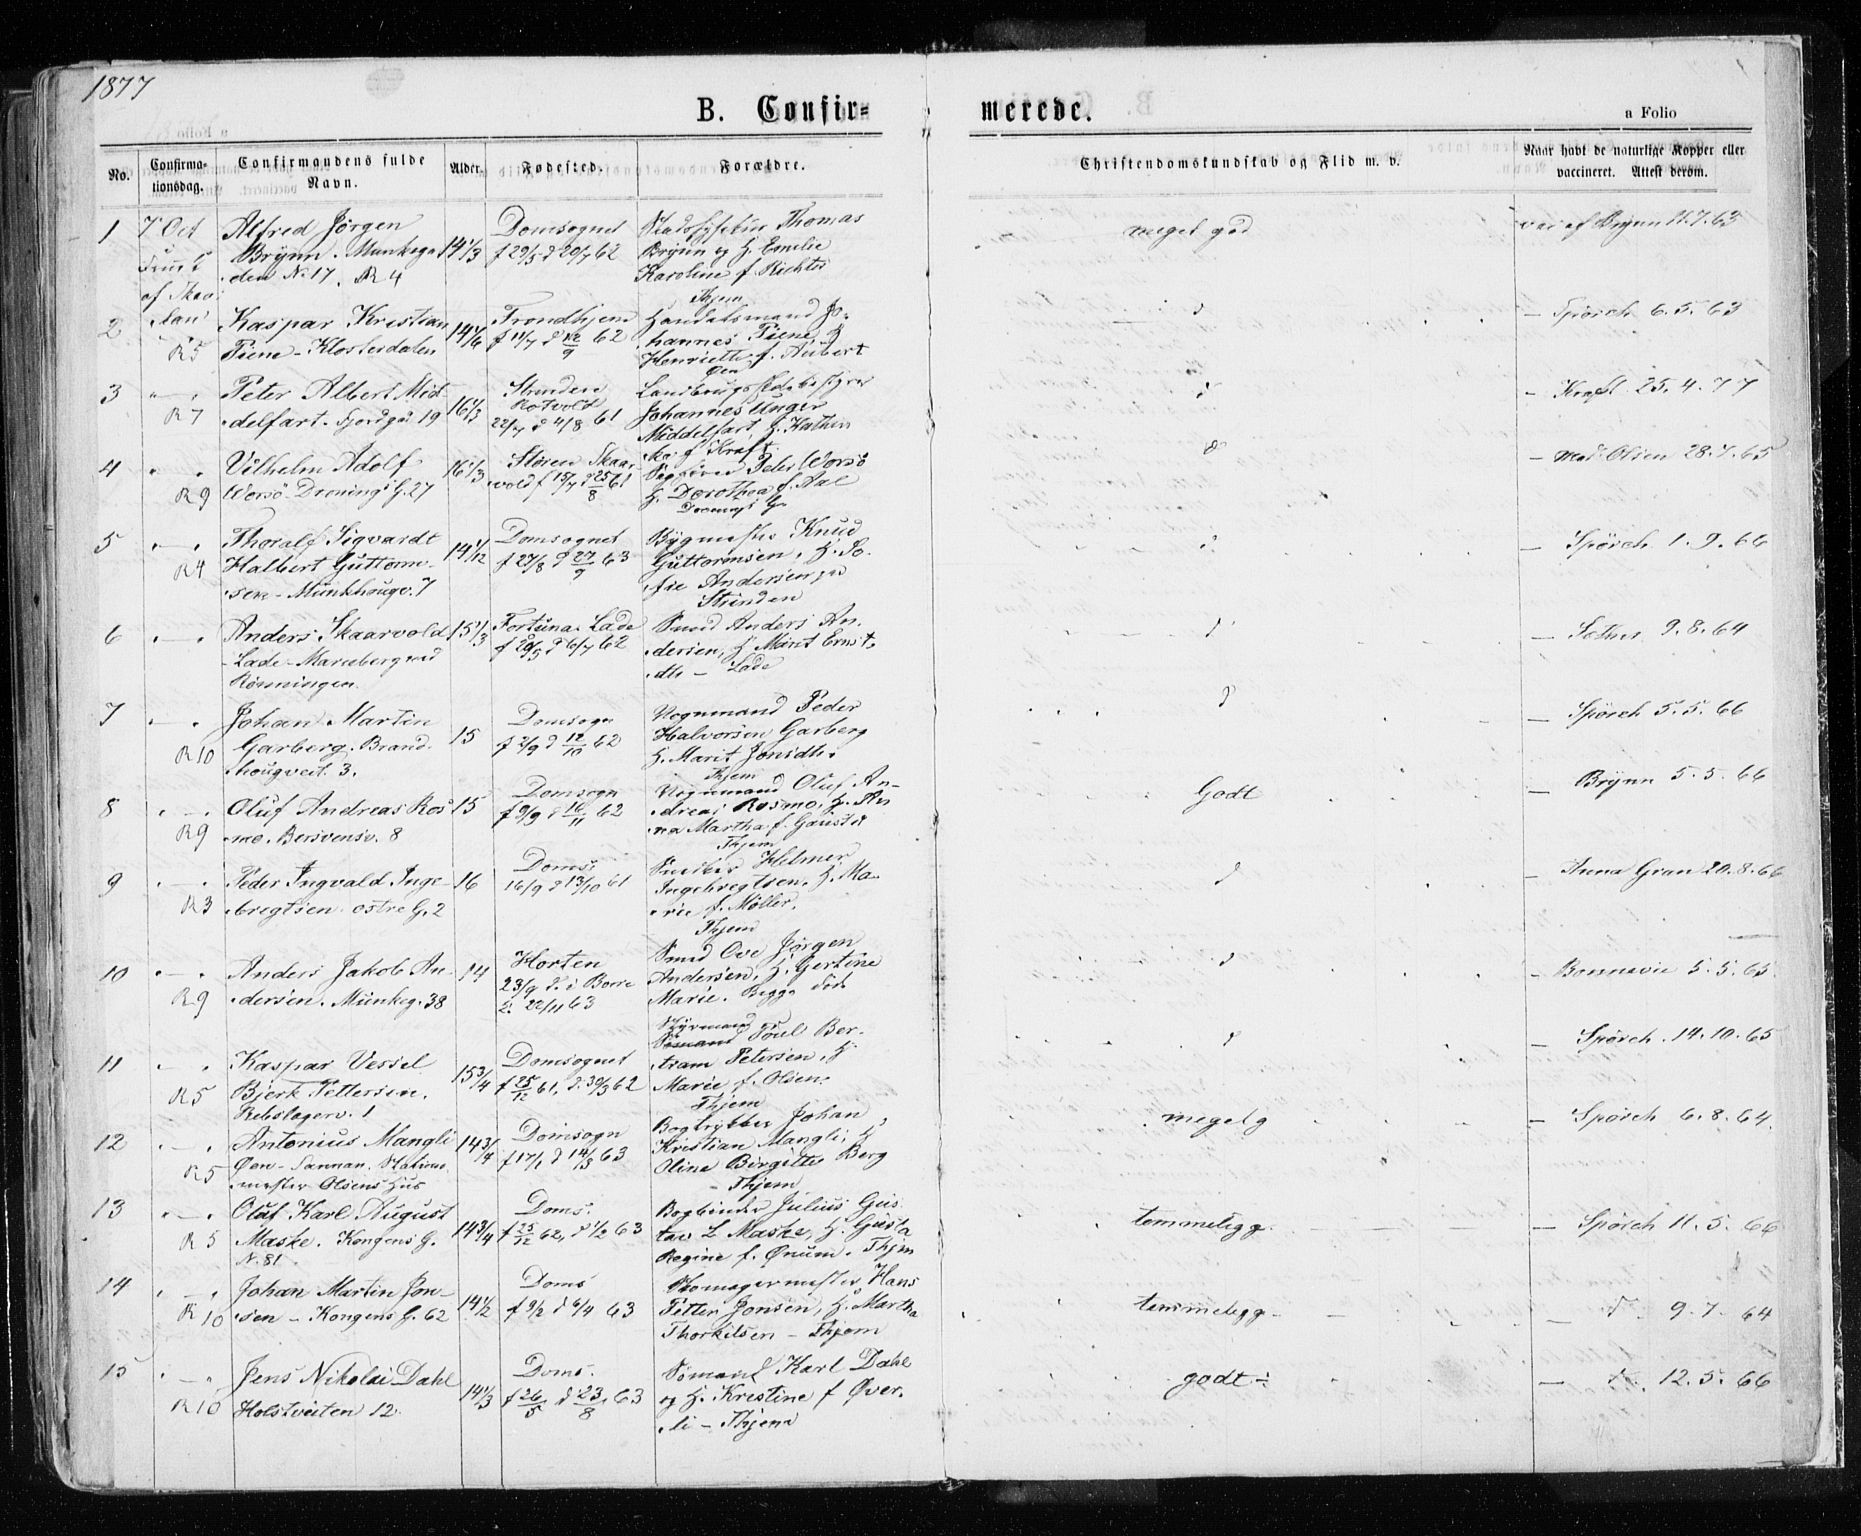 1877
B. Confir=
merede.
a Folio
No.
Confirma-
tionsdag.
Confirmandens fulde
Navn.
Alder.
Fødested.
Forældre.
Christendomskundskab og Flid m. v.
Naar havt de naturlige Kopper eller
vaccineret. Attest derom.
1
7 Oct
Alfred Jörgen
Brÿnn. Munkega
den No 17. R 4
14 1/3
Domsognet
f 29/5 d 20/7 62
Thomas
Brÿnn og H. Emelie
Karoline f. Richter
Thjem
meget god
vac af Brÿnn 11.7.63
2
R5
Kaspar Kristian
Piene - Klosterdalen
14 1/6
Trondhjem
f 11/7 d 12/9 62
Handelsmand Jo-
hannes Piene, H
Henriette f. Aubert
Øen
d
- Spörck 6.5.63
3
R7
Peter Albert Mid
delfart. Fjordga 19
16 1/3
Strinden
Rotvold
22/7 d 4/8 61
Johannes Unger
Middelfart, H. Kathin
ka f Kraft
d
- Kraft 25.4.77
4
R9
Vilhelm Adolf
Worsö - Dronings G. 27
16 1/3
Stören Skaar
vold f 15/7 d 25/8 61
Peter Worsö
H. Dorothea f. Aal
Dronings G.
d
- Mad. Olsen 28.7.65
5
R4
Thoralf Sigvardt
Halbert Guttorm
sen - Munkhougv. 7
14 1/12
Domsognet
f 27/8 d 27/9 63
Bÿgmester Knud
Guttormsen, H. So-
fie Andersen
Strinden
d
- Spörck 1.9.66
6
Anders Skaarvold
Lade - Marieberg ved
Rönningen
15 1/3
Fortuna Lade
f 28/5 d 6/7 62
Smed Anders An-
dersen, H Marit Ernst-
dtr - Lade
d
- 9.8.64
7
R10
Johan Martin
Garberg. Brand
hougveit. 3.
15
Domsogn
f 2/9 d 12/10 62
Vognmand Peder
Halvorsen Garberg
H. Marit Jonsdtr.
Thjem
d
- Spörck 5.5.66
8
R9
Oluf Andreas Ros
mo. Bersvensv. 8
15
Domsogn
f 9/9 d 16/11 62
Vognmand Oluf An-
dreas Rosmo, H. An
na Martha f. Gaustad
Thjem
Godt
- Brÿnn 5.5.66
9
R3
Peder Ingvald Inge-
bregtsen. østre G. 2
16
Doms.
16/9 d 13/10 61
Snedker Helmer
Ingebregtsen, H. Ma-
rie f. Möller.
Thjem
d
- Anna Gran 20.8.66
10
R9
Anders Jakob An-
dersen. Munkeg. 38
14
Horten
23/9 d. i Borre
K. 22/11 63
Smed Ove Jörgen
Andersen, H. Gertine
Marie. Begge döde
d
- 5.5.65
11
R5
Kaspar Vessel
Bjerk Pettersen.
Rebslagerv. 1
15 3/4
Domsognet
f 25/12 61, d. 30/3 62
Styrmand
Poul Ber-
tram Petersen, H.
Marie f. Olsen.
Thjem
d
- Spörck 14.10.65
12
R5
Antonius Mangli
Öen - Sannan. Stations
mester Olsens Hus
14 3/4
Domsogn
f 17/1 d 14/3 63
Bogtrÿkker Johan
Kristian Mangli, H
Olina Birgitte Berg
- Thjem
meget g
- Spörck 6.8.64
13
R5
Oluf Karl August
Maske. Kongens G.
N. 81
14 3/4
Doms.
f 25/12 62, d 1/2 63
Bogbinder Julius Gus
tav L Maske, H. Gusta
Regine f. Ønum. Thjem
temmeligg.
- Spörck 11.5.66
14
R10
Johan Martin Jon-
sen - Kongens G. 62
14 1/2
Doms
f 9/2 d 6/4 63
Skomagermester Hans
Petter Jonsen, H. Martha
Thorkilsen - Thjem
temmeligg
- d. 9.7.64
15
R10
Jens Nikolai Dahl
Holstveiten 12.
14 1/3
Doms.
f 26/5 d 23/8 63
Sömand Karl Dahl
og H. Kristine f Över-
li - Thjem
godt
- d. 12.5.66